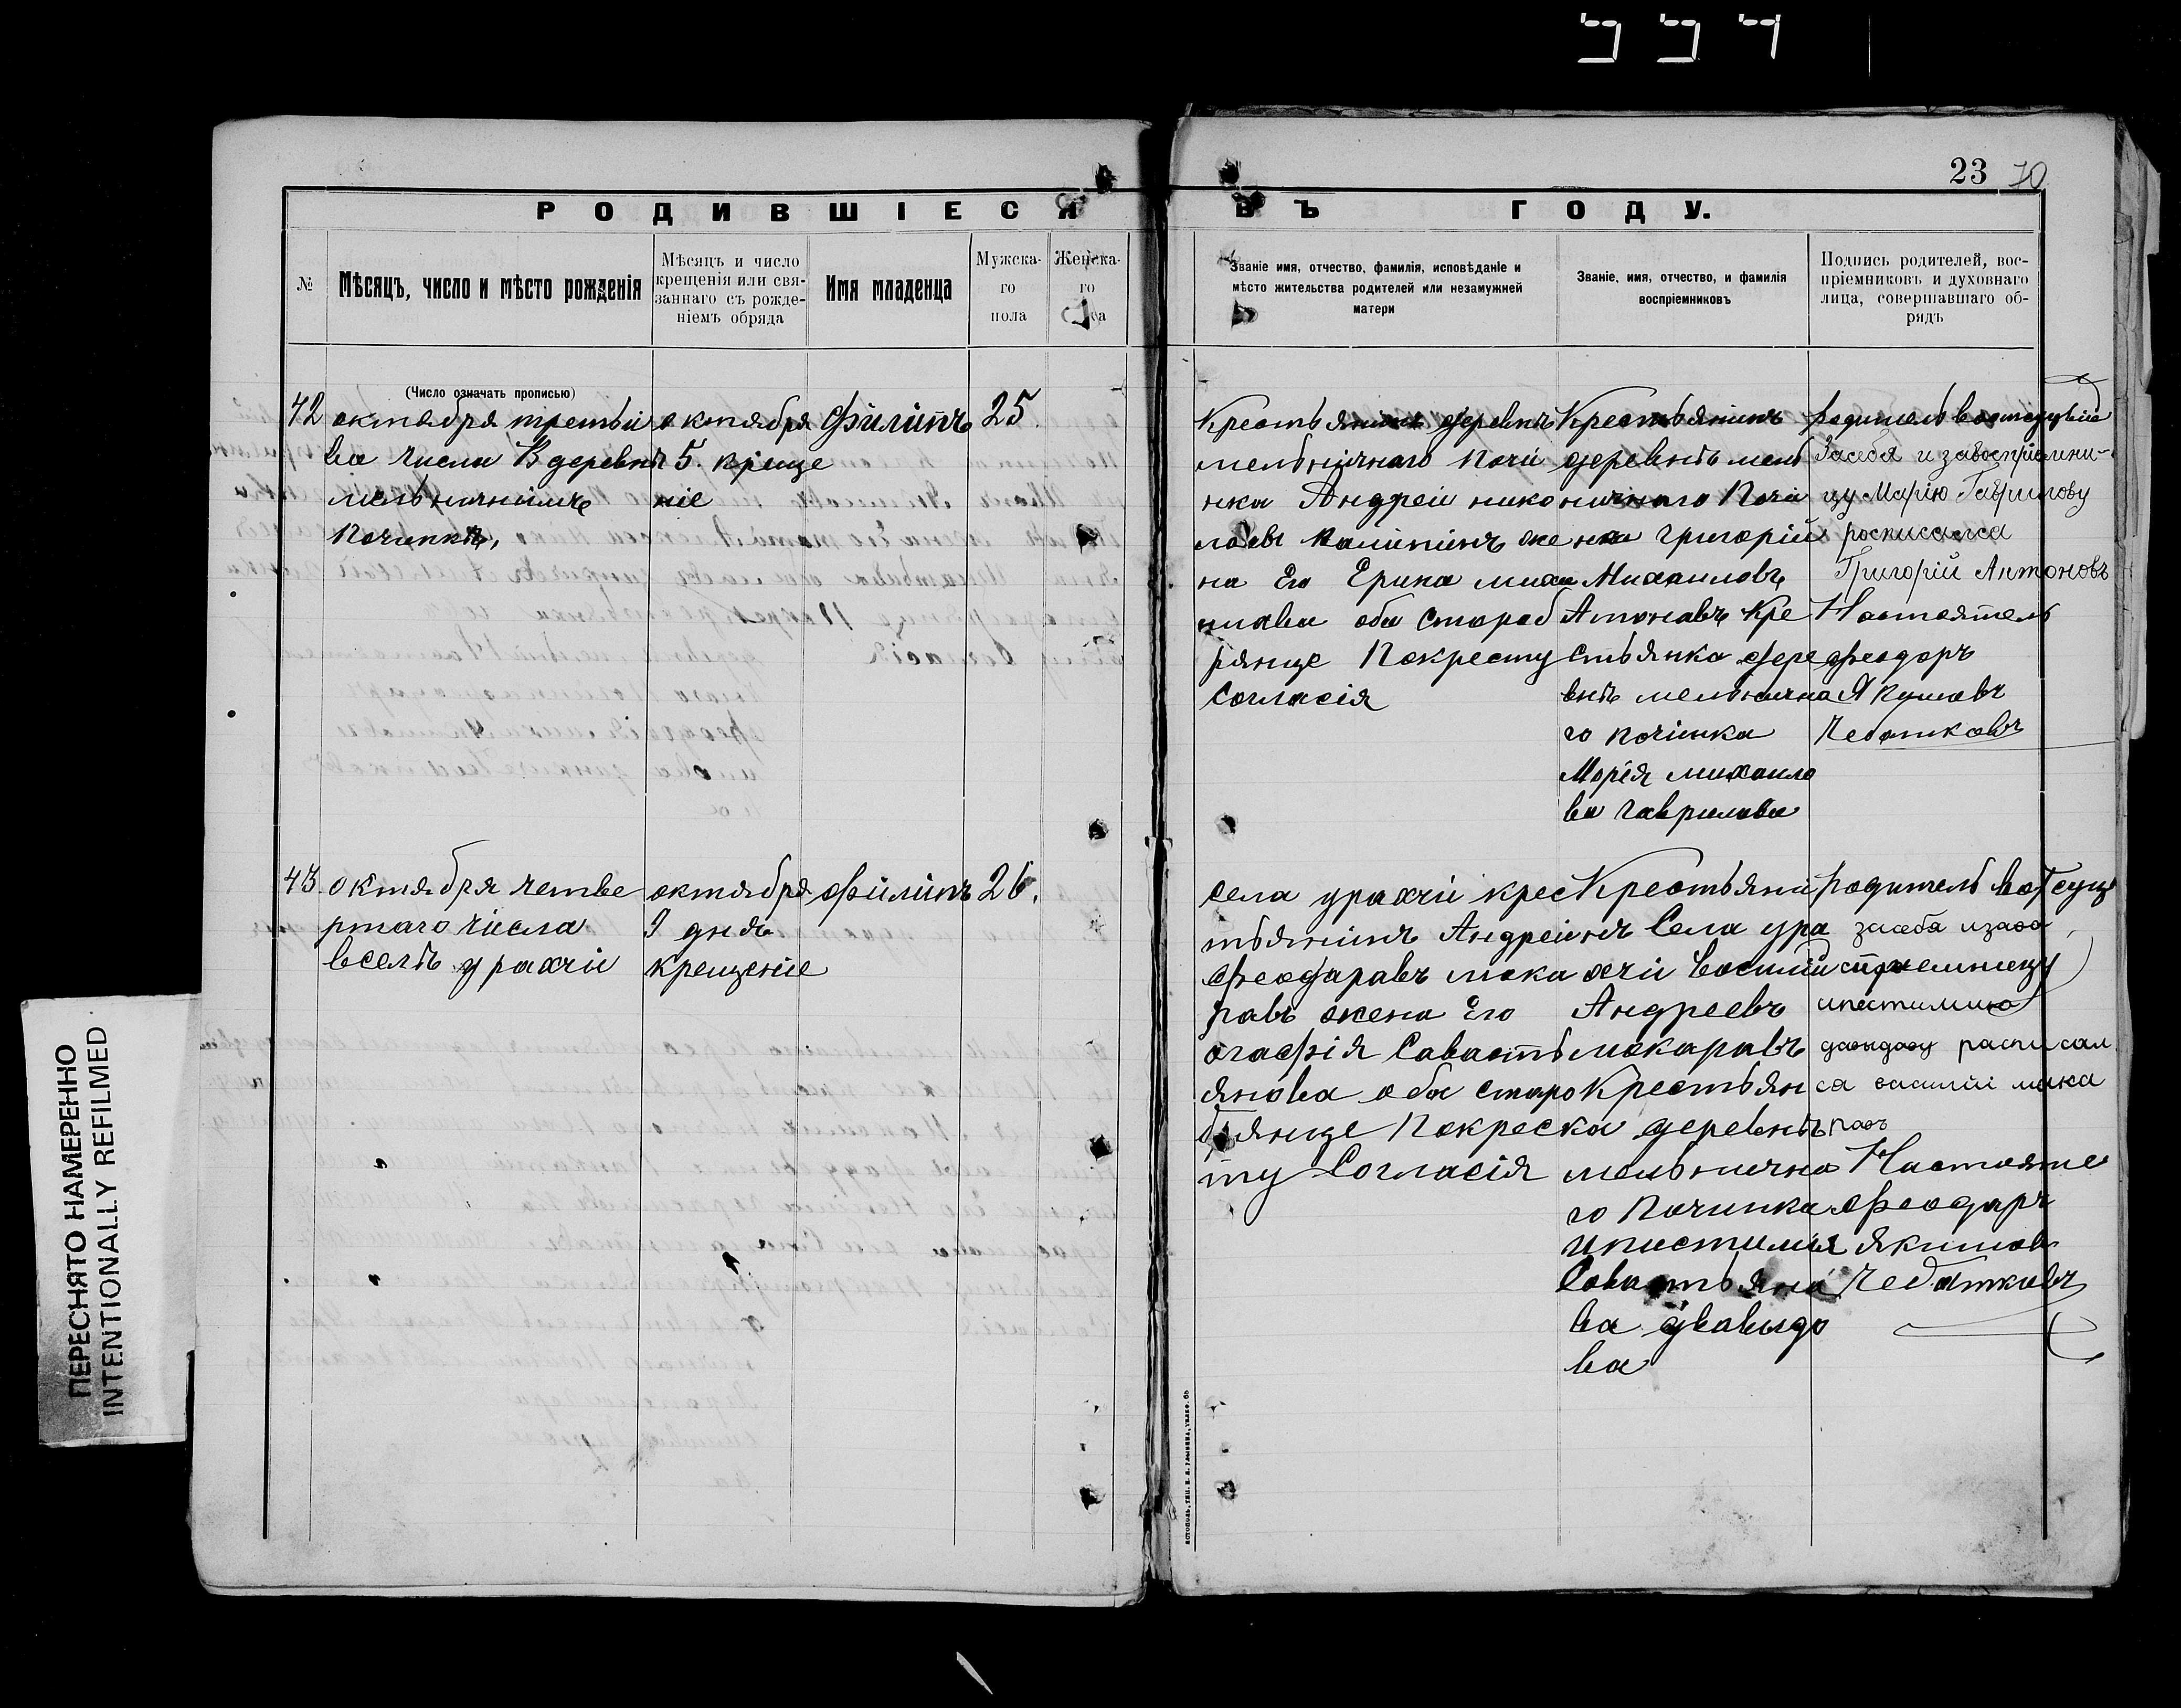 23 70
РОДИВШІЕСЯ ВЪ ГОДУ.
№
Мѣсяцъ, число и мѣсто рожденія
Мѣсяцъ и число
крещенія или свя-
заннаго съ рожде-
ніемъ обряда
Имя младенца
Мужска-
го
пола
Женска-
го
Званіе имя, отчество, фамилія, исповѣданіе и
мѣсто жительства родителей или незамужней
матери
Званіе, имя, отчество, и фамилія
воспріемниковъ
Подпись родителей, вос-
пріемниковъ и духовнаго
лица, совершавшаго об-
рядъ
(Число означать прописью)
42
октября третьи
ва числа В деревнѣ
мельничнимъ
Починкѣ,
октября
5. креще
ніе
Филипъ
25.
Крестьянинъ деревнѣ
мельничнаго почи
нка Андреи нико
лаевъ Калининъ же
на Его Ерина михаи
лова оба староб
рянце Покресту
Согласія
Крестьянинъ
деревнѣ мель
ничнаго Почи
нка Григорій
Михаиловъ
Атонавъ Кре
стьянка дере
внѣ мельнична
го починка
Марія михаило
ва гаврилова
родитель
Засебя и завоспріемни-
цу Марію Гаврилову
росписался
Григорій Антоновъ
Настоятель
феодоръ
Якимовъ
Чебатковъ
43
октября четве
ртаго числа
вселѣ урахчи
октября
9 дня
крещеніе
Филипъ
26.
села урахчи крес
тьянинъ Андреи
Феодаравъ мака
равъ жена Его
агафія Савастѣ
янова оба старо
брянце Покрес
ту Согласія
Крестьяни
нъ Села ура
хчи Василии
Андреевъ
макаравъ
Крестьян
ка деревнѣ
мельнична
го Починка
Ипистимия
Савастьяно
ва Давыдо
ва
родитель
засебя изавос
приемницу
ипистимию
давыдову расписал
ся василіи мака
равъ
Настояте
Феодаръ
якимов
Чебатковъ
ПЕРЕСНЯТО НАМЕРЕННО
INTENTIONALLY REFILMED